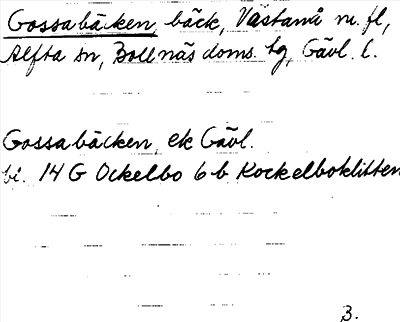 Gossabäcken, bäck, Västanå m. fl,
Alfta sn, Bollnäs doms. tg, Gävl. l.
Gossabäcken, ek Gävl.
bi. 14 G Ockelbo 6 b Kockelboklitten
3.